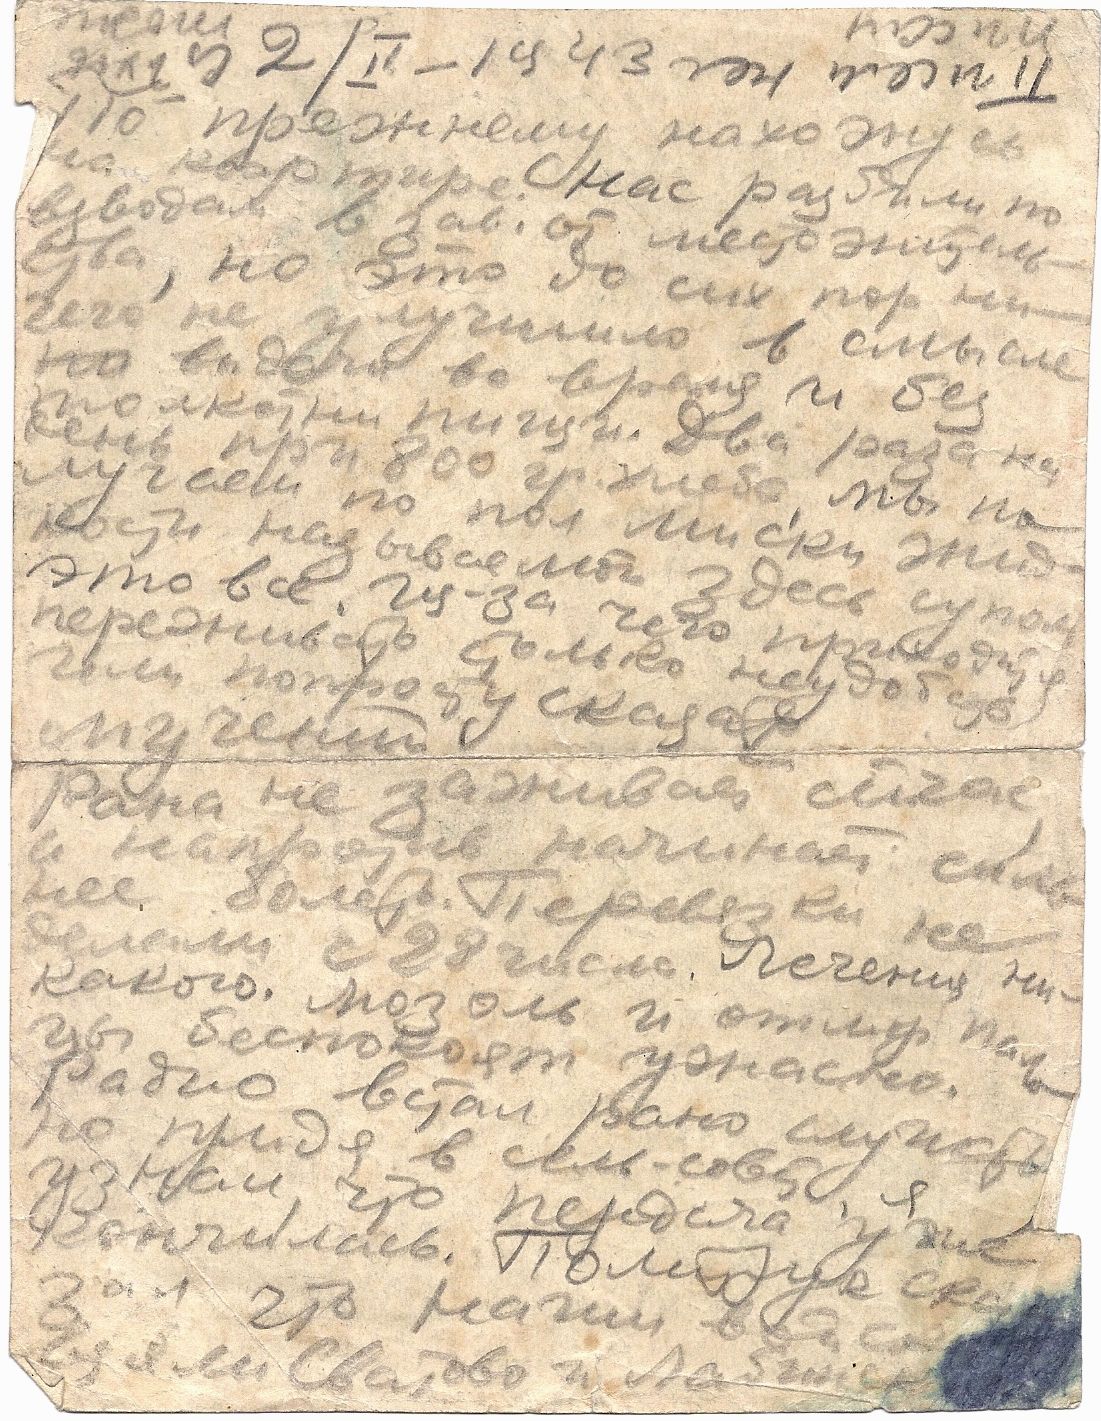 2/II – 1943
По прежнему нахожусь
на квартире. Нас разбили по
взводам в зав. от местожитель-
ства, но это до сих пор ни-
чего не улучшило в смысле
выдачи во время и без
пищи. Два раза на
день при 800 гр. хлеба, мы по-
лучаем по пол миски жид-
кости называемой здесь супом
это все. Из-за чего приходится
переживать столько неудобств
мучений.
Рана не заживает сейчас
а напротив начинает силь-
нее болеть. Перевязки не
делали с 28 числа. Лечения ни-
какого. Мозоль и отмор паль-
цы беспокоят ужасно.
Радио встал рано слушать
но придя в сель-совет я
узнал, что передача уже
кончилась. Политрук ска-
зал что наши войска
взяли Сватово и